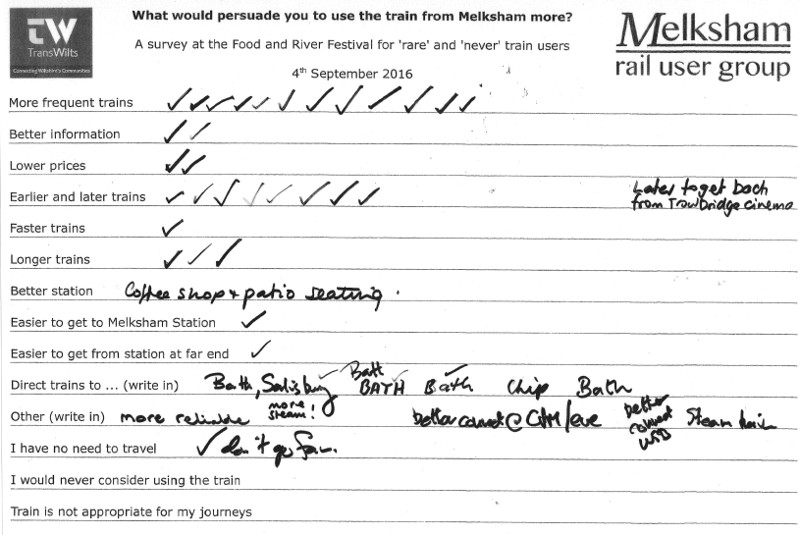 TW
TransWilts
Connecting Wiltshire's Communities
What would persuade you to use the train from Melksham more?
A survey at the Food and River Festival for 'rare' and 'never' train users
4th September 2016
Melksham
rail user group
More frequent trains ✓ ✓ ✓ ✓ ✓ ✓ ✓ ✓ ✓ ✓ ✓ ✓
Better information ✓ ✓
Lower prices ✓ ✓
Earlier and later trains ✓ ✓ ✓ ✓ ✓ ✓ ✓ ✓ Later to get back
from Trowbridge cinema
Faster trains ✓
Longer trains ✓ ✓ ✓
Better station Coffee shop + patio seating.
Easier to get to Melksham Station ✓
Easier to get from station at far end ✓
Direct trains to ... (write in) Bath, Salisbury ✓ Bath BATH ✓ Bath ✓ Chip Bath
Other (write in) more reliable more steam! better connect @ CHM/eve better connect WSB Steam train
I have no need to travel ✓ don't go far.
I would never consider using the train
Train is not appropriate for my journeys